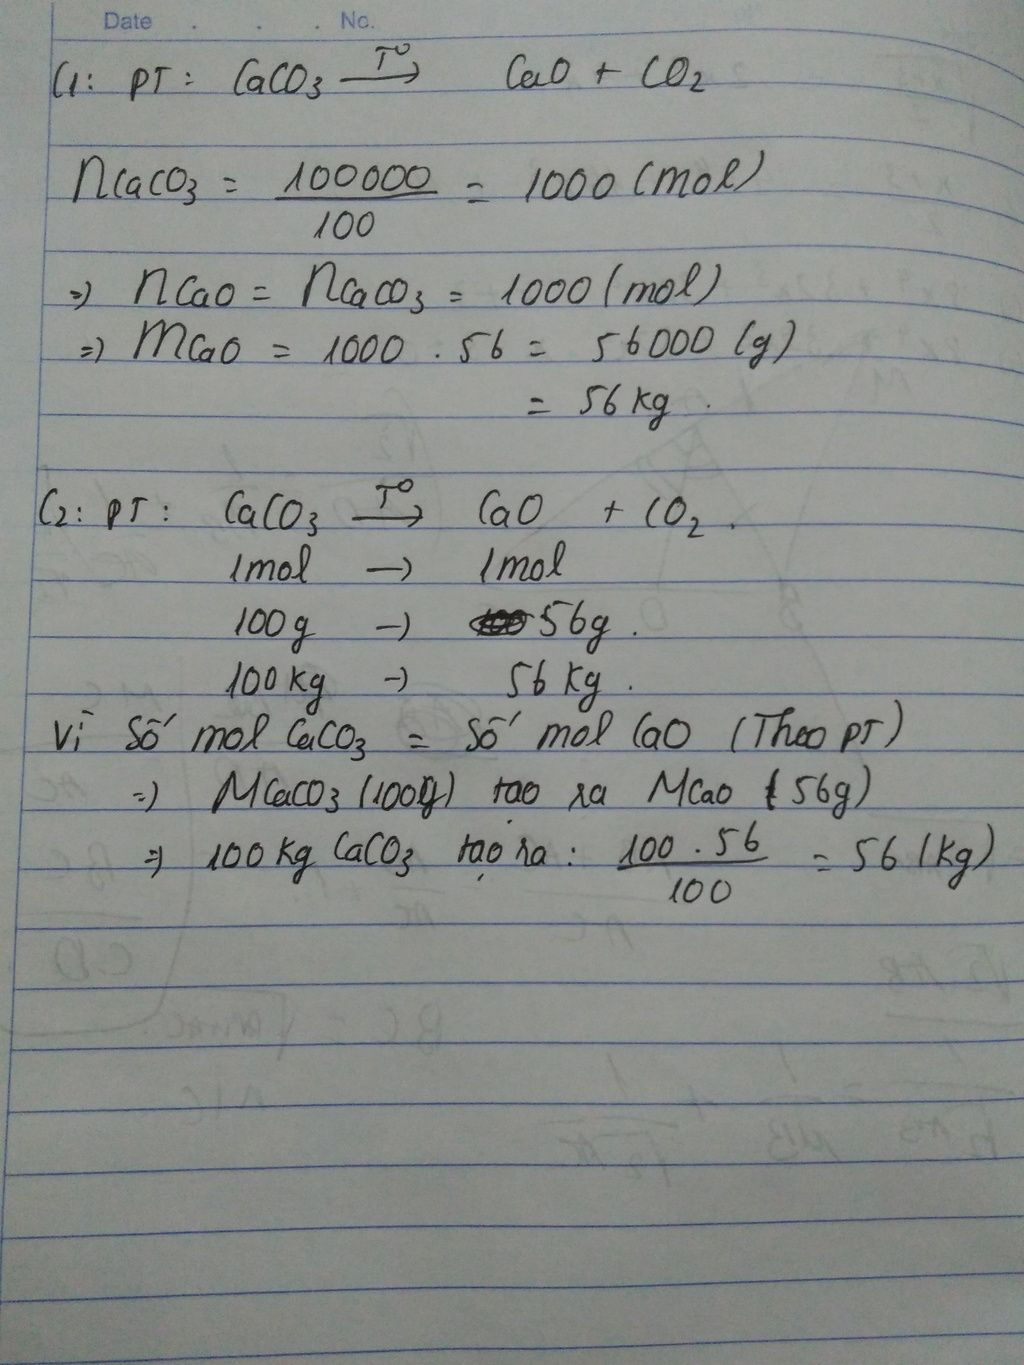 Date . . . No.
C1: PT: CaCO3 —T°→ CaO + CO2
nCaCO3 = 100000/100 = 1000 (mol)
=> nCaO = nCaCO3 = 1000 (mol)
=> MCaO = 1000 . 56 = 56000 (g)
= 56 kg .
C2: PT: CaCO3 —T°→ CaO + CO2 .
1mol → 1mol
100g → 56g .
100 kg → 56 kg .
Vì số mol CaCO3 = số mol CaO (Theo PT)
=> MCaCO3 (100g) tạo ra MCaO (56g)
=> 100 kg CaCO3 tạo ra : 100 . 56/100 = 56 (kg)